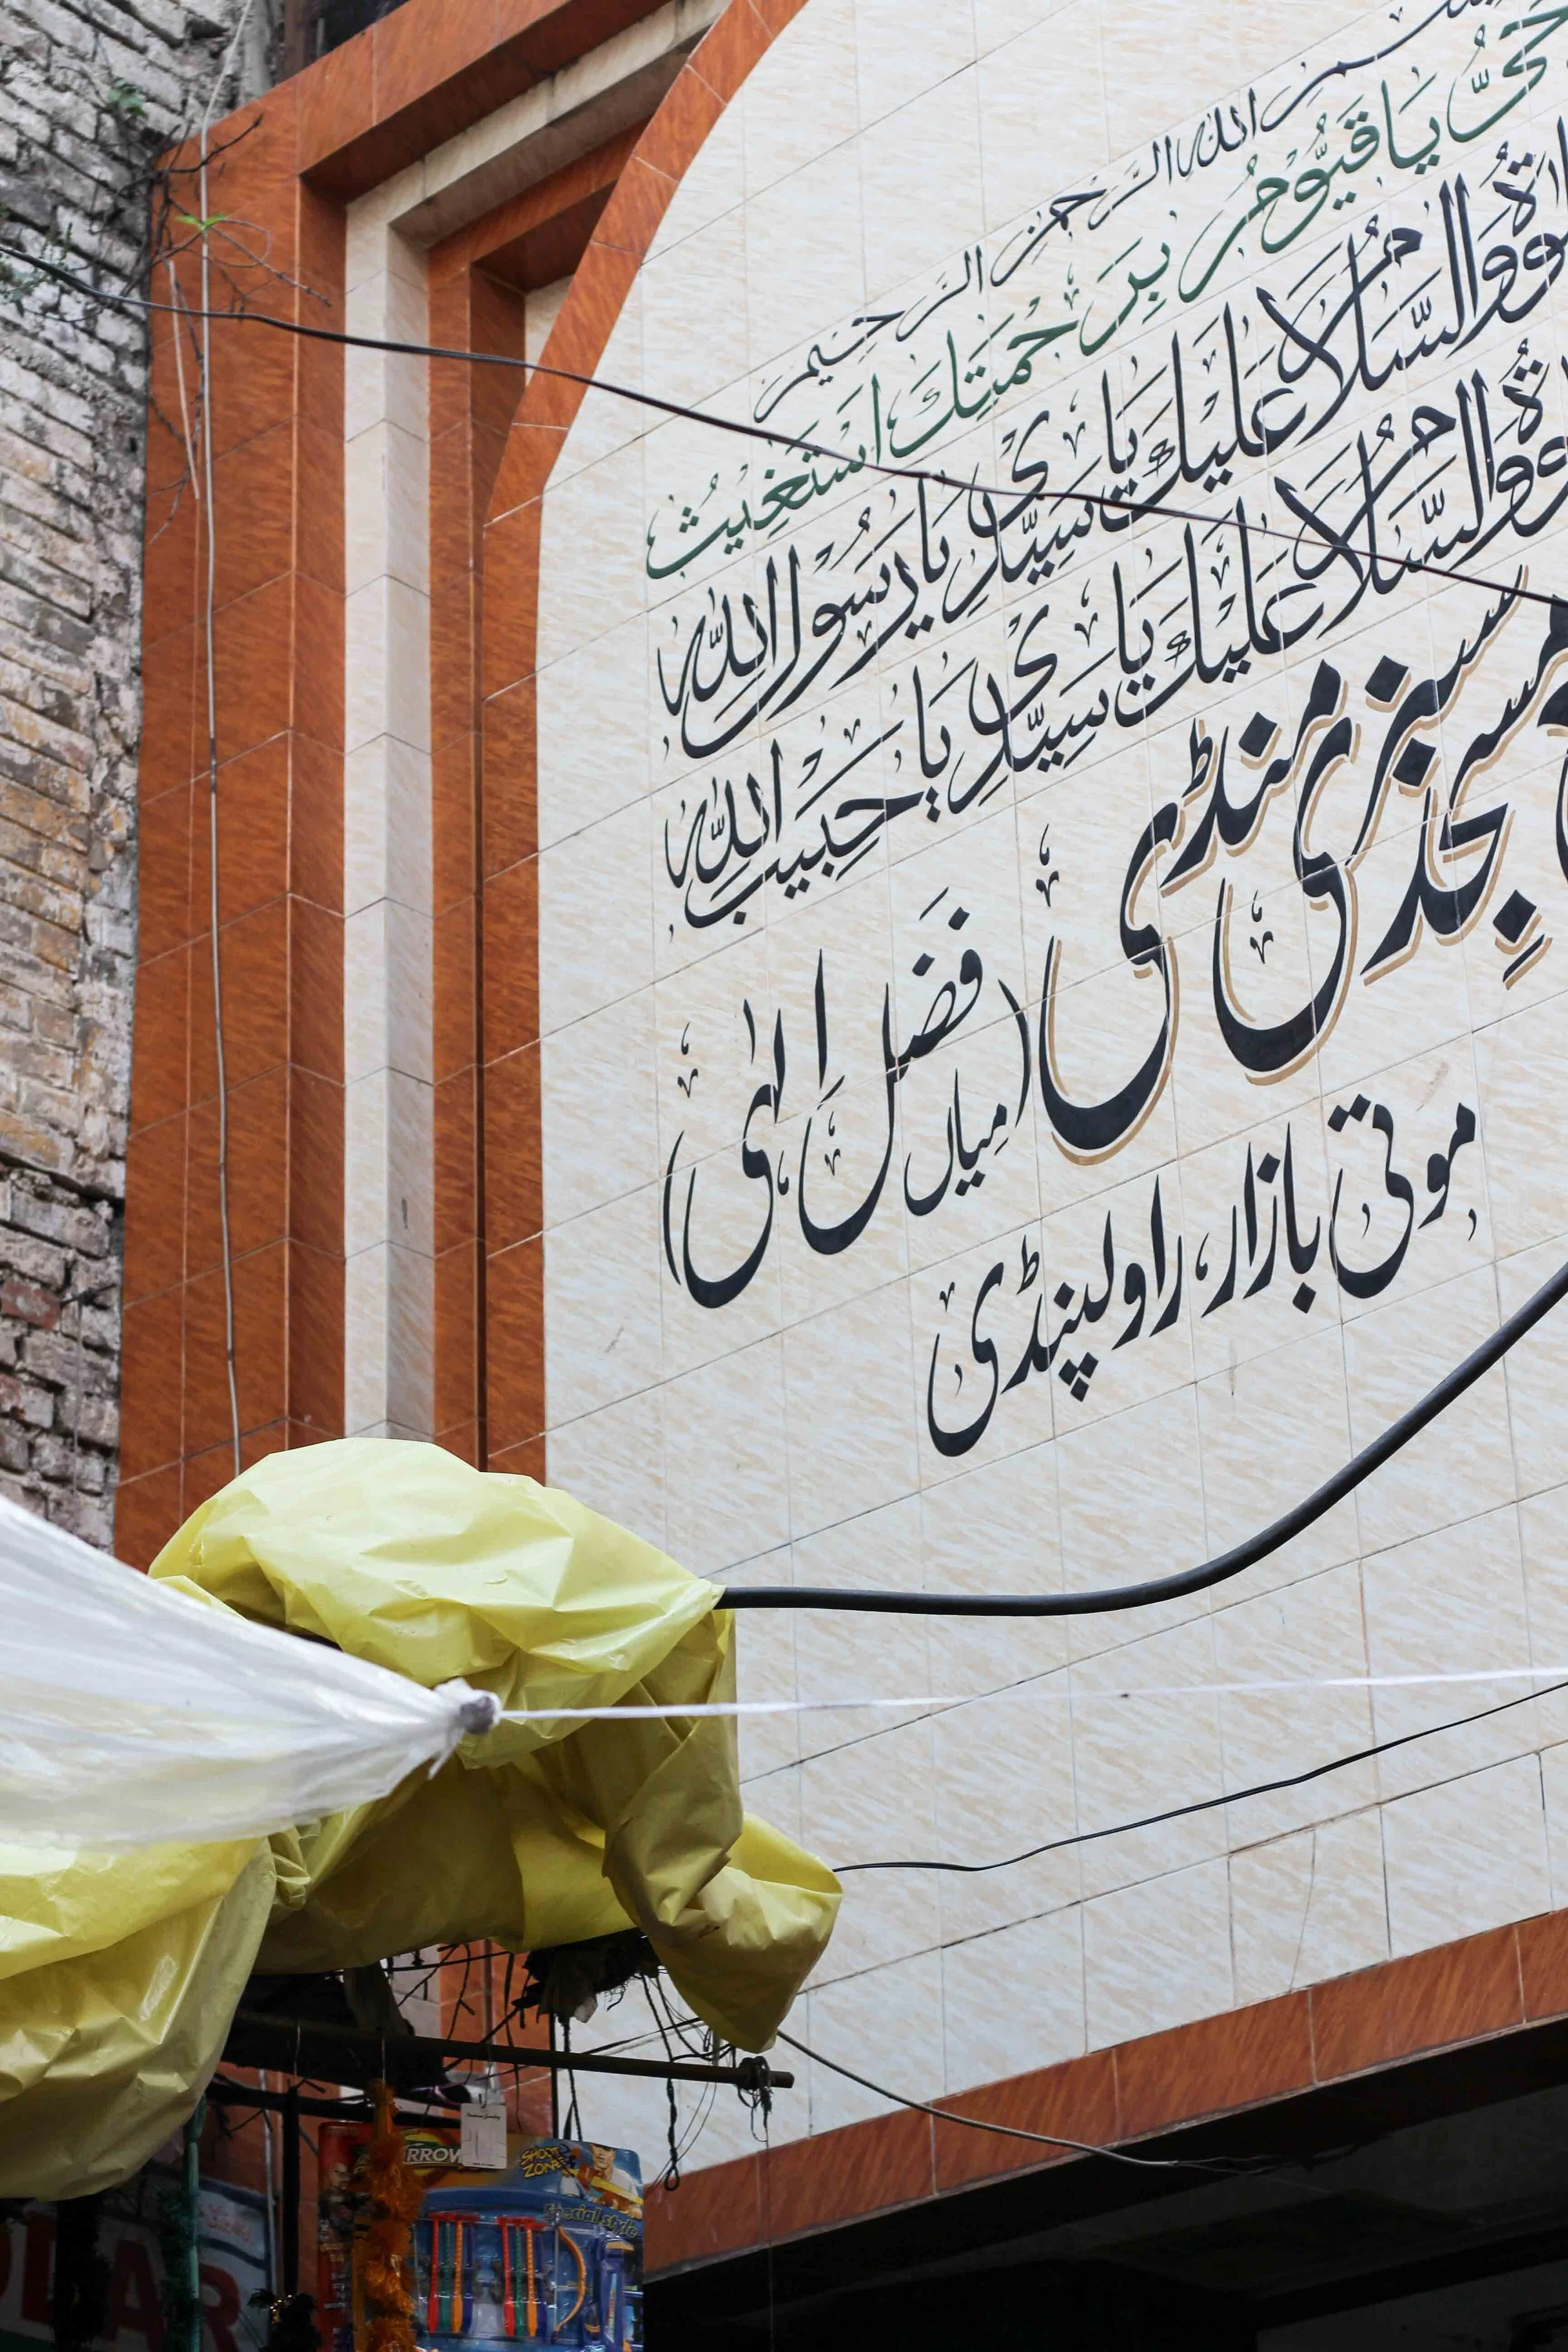 بسم الله الرحمن الرحيم
حَیُّ یَا قَیُّوْمُ بِرَحْمَتِكَ اَسْتَغِيْثُ
وَالسَّلَامُ عَلَیْكَ یَا سَیِّدِیْ یَا رَسُوْلَ اللہ
وَالسَّلَامُ عَلَیْكَ یَا سَیِّدِیْ یَا حَبِیْبَ اللہ
مسجد سبزی منڈی (میاں فضل الٰہی)
موتی بازار، راولپنڈی
RROW
SHOOT ZONE
Special style